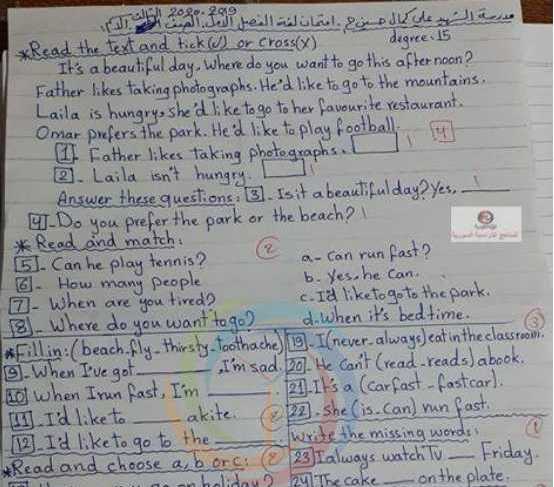 2020-2019
degree: 15
*Read the text and tick(✓) or cross(x)
It's a beautiful day. Where do you want to go this afternoon?
Father likes taking photographs. He'd like to go to the mountains.
Laila is hungry, she'd like to go to her favourite restaurant.
Omar prefers the park. He'd like to play football.
4
1]. Father likes taking photographs.
2]- Laila isn't hungry.
Answer these questions: 3]- Is it a beautiful day? Yes, ____
4]-Do you prefer the park or the beach?
* Read and match: 2
5]- Can he play tennis? a- Can run fast?
6]- How many people b- Yes, he can.
7]- When are you tired? c- I'd like to go to the park.
8]- Where do you want to go? d- When it's bed time.
3
*Fill in: (beach-fly-thirsty-toothache)
9]- When I've got ____, I'm sad.
10] When I run fast, I'm ____
11]- I'd like to ____ a kite. 2
12]- I'd like to go to the ____
*Read and choose a, b or c: 2
19]- I (never-always) eat in the classroom.
20]. He can't (read-reads) a book.
21]. It's a (car fast-fast car).
22]- She (is-can) run fast.
Write the missing words: 1
23] I always watch TV ____ Friday.
24] The cake ____ on the plate.
on holiday?